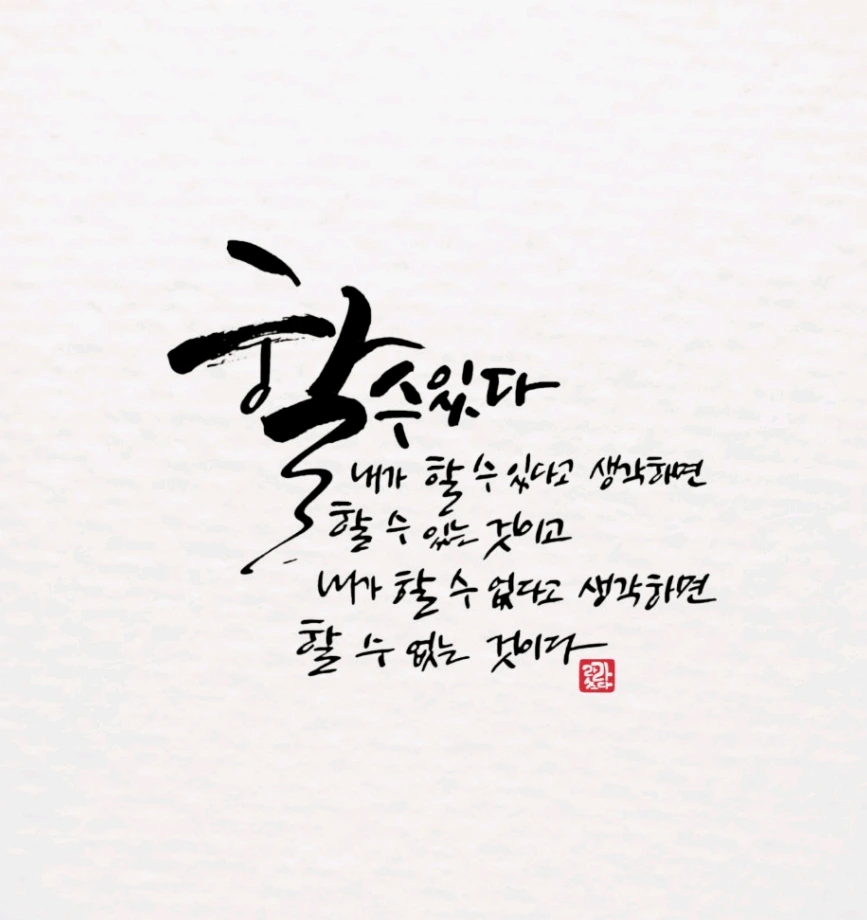 할 수 있다
내가 할 수 있다고 생각하면
할 수 있는 것이고
내가 할 수 없다고 생각하면
할 수 없는 것이다